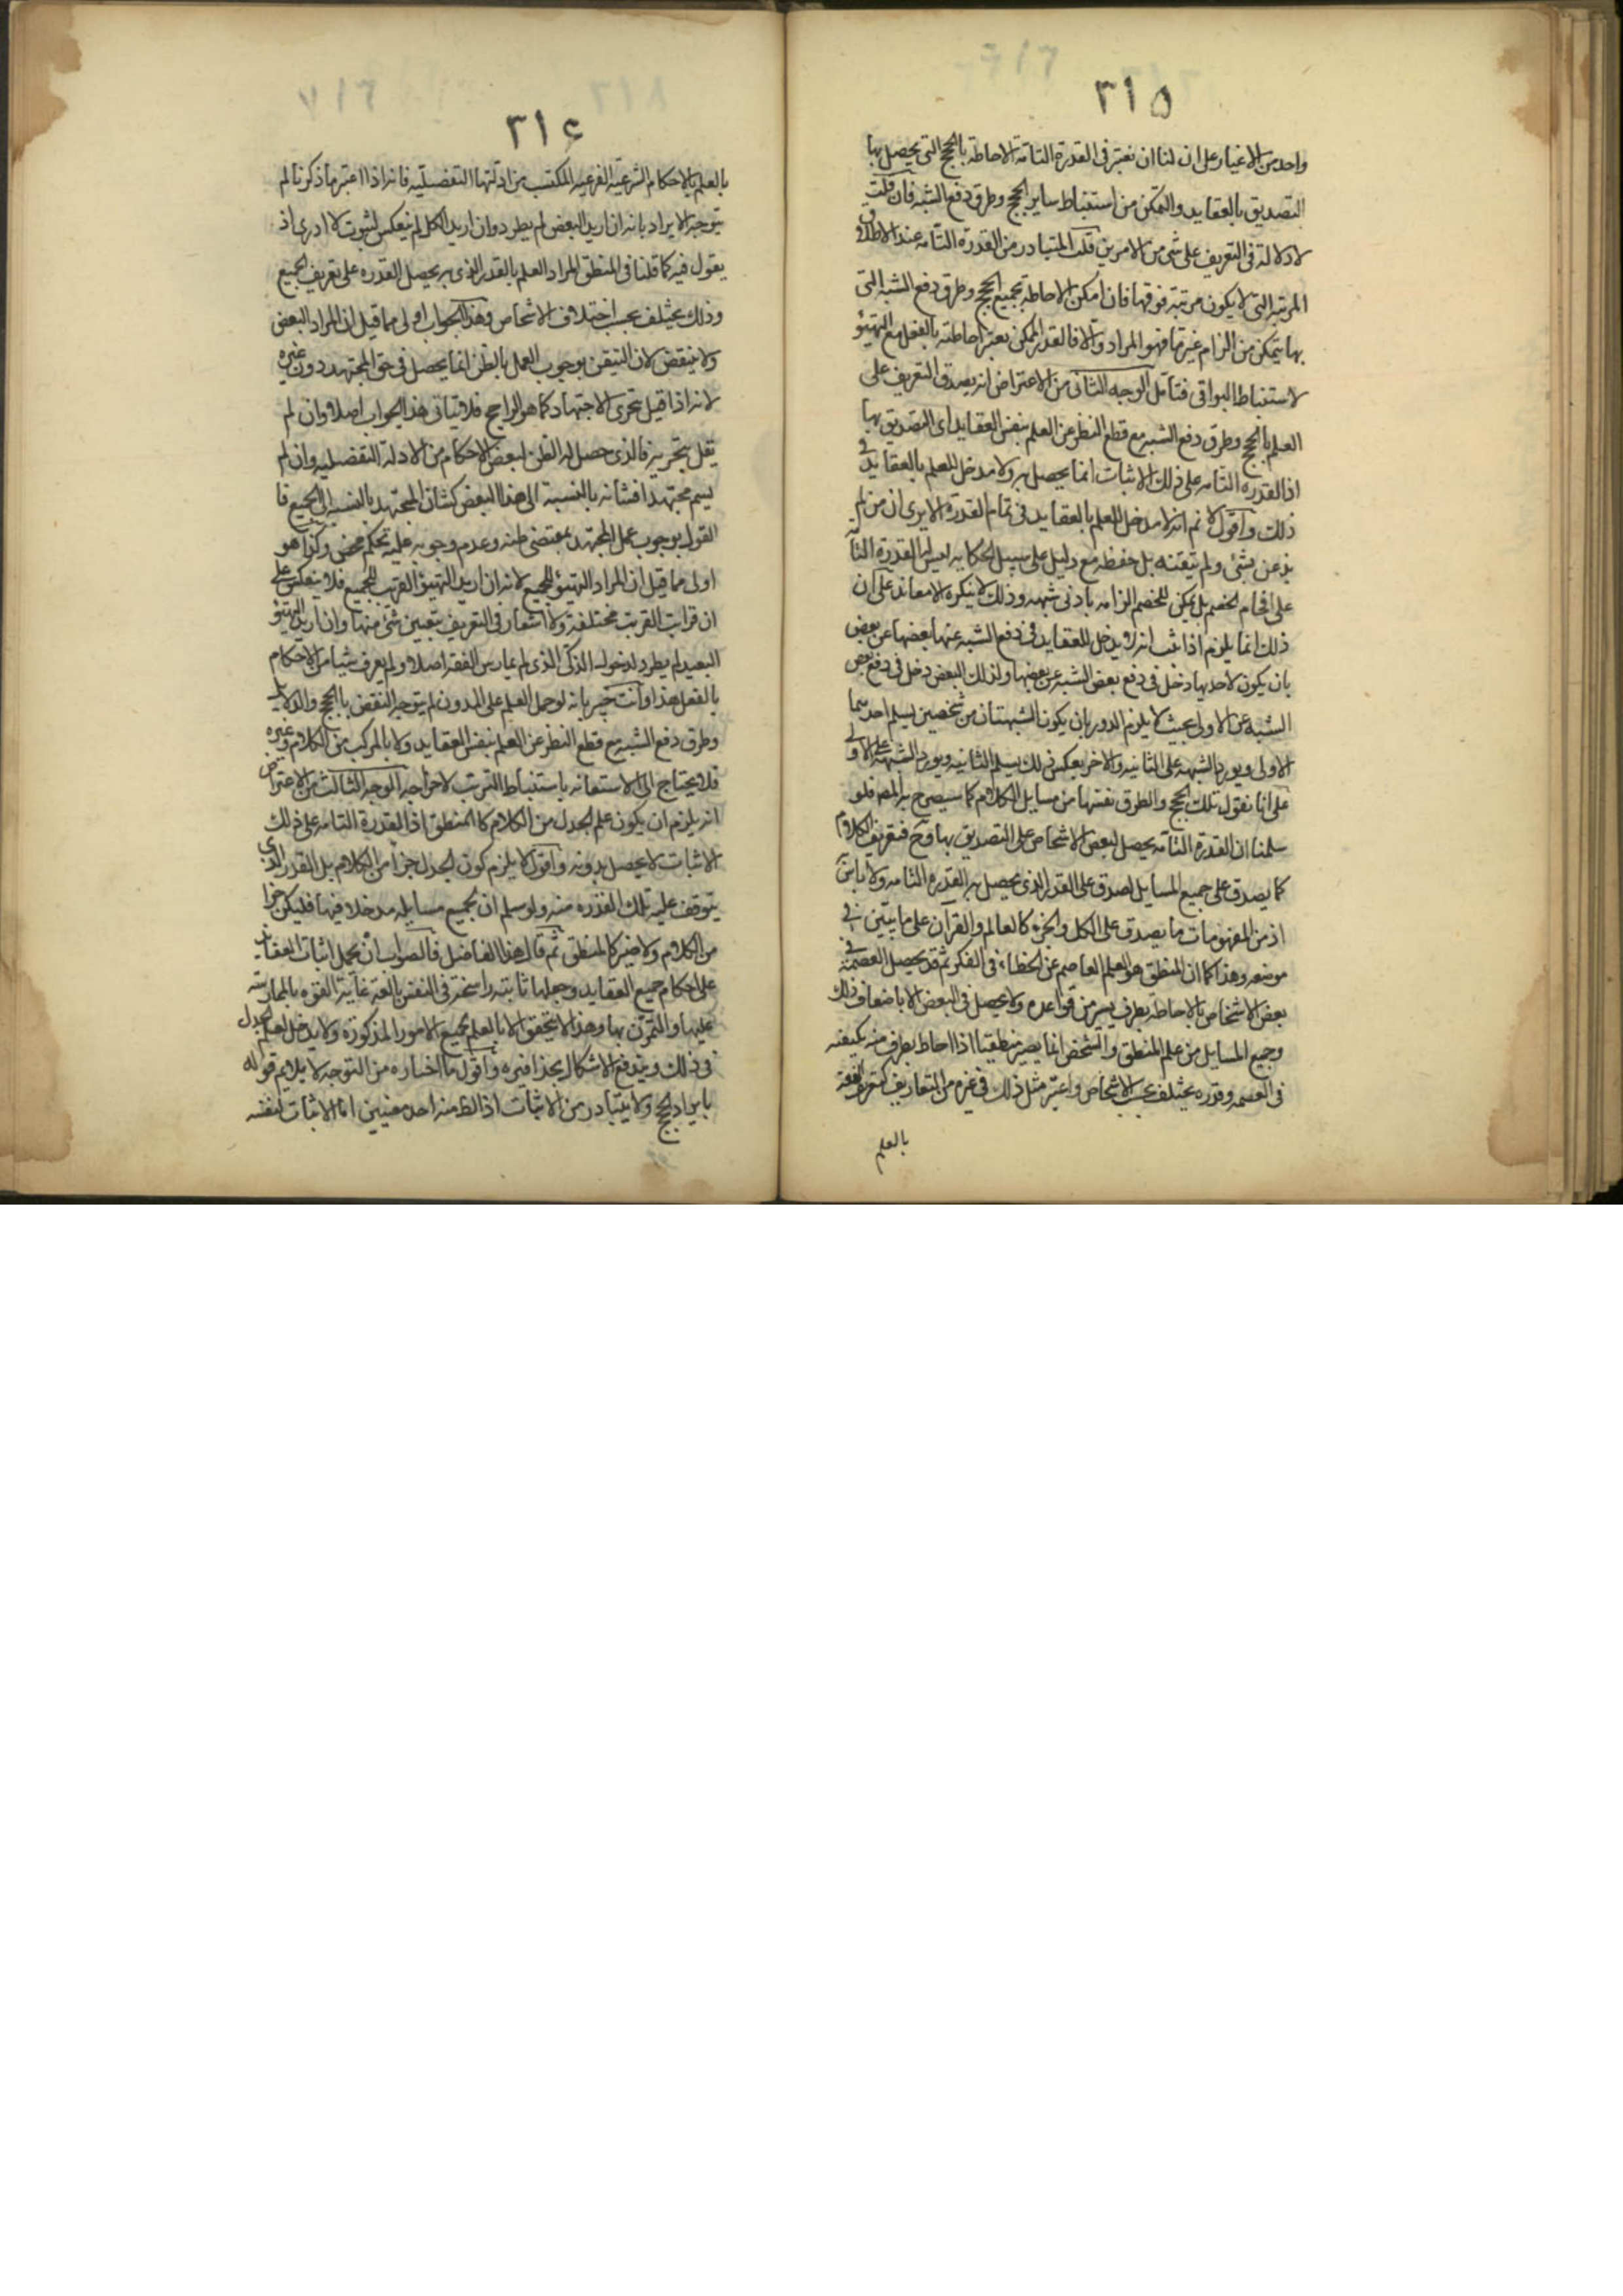 ٣١٥
واحد من الاغيار على ان لنا ان نعتبر فى القدرة التامة الاحاطة بالحجج التى يحصل بها
التصديق بالعقايد والتمكن من استنباط ساير الحجج وطرق دفع الشبه فان قلت
لا دلالة فى التعريف على شئ من الامرين قلت المتبادر من القدرة التامه عند الاطلاق
المرتبه التى لا يكون مرتبة فوقها فان امكن الاحاطه بجميع الحجج وطرق دفع الشبه التى
بها يتمكن من الزام غيرها فهو المراد والا فالقدر الممكن يعتبر احاطته بالفعل مع التهيئو
لاستنباط البواقى فتأمل الوجه الثانى من الاعتراض انه يصدق التعريف على
العلم بالحجج وطرق دفع الشبه مع قطع النظر عن العلم بنفس العقايد اى التصديق بها
اذ القدره التامه على ذلك الاثبات انما يحصل به ولا مدخل للعلم بالعقايد فى
ذلك واقول لا نم انه لا مدخل للعلم بالعقايد فى تمام القدرة الا يرى ان من لم
يذعن بشئ ولم يتيقنه بل حفظه مع دليل على سبيل الحكايه ليس له القدرة التامة
على افحام الخصم بل يمكن للخصم الزامه بادنى شبهه وذلك لا ينكره الا معاند على ان
ذلك انما يلزم اذا ثبت انه لا يدخل للعقايد فى دفع الشبه عنها بعضها عن بعض
بان يكون لاحديها دخل فى دفع بعض الشبه عن بعضها ولذلك البعض دخل فى دفع بعض
الشبه عن الاولى بحيث لا يلزم الدور بان يكون الشبهتان من شخصين يسلم احدهما
الاولى ويورد الشبهه على الثانيه والاخر بعكس ذلك يسلم الثانيه ويورد الشبهة على الاولى
على انا نقول تلك الحجج والطرق نفسها من مسايل الكلام كما سيصرح به المصه فلو
سلمنا ان القدرة التامه يحصل لبعض الاشخاص على التصديق بها وح فتعريف الكلام
كما يصدق على جميع المسايل لصدق على القدر الذى يحصل به القدره التامه ولا باس
اذ من المفهومات ما يصدق على الكل والجزء كالعالم والقرآن على ما يتبين فى
موضعه وهذا كما ان المنطق هو العلم العاصم عن الخطاء فى الفكر ثم قد يحصل العصمة فى
بعض الاشخاص بالاحاطه بطرف يسير من قواعده ولا يحصل فى البعض الا باضعاف ذلك
وجميع المسايل من علم المنطق والشخص انما يصير منطقيا اذا احاط بطرف منه يكيفه
فى العصمه وقدره يختلف بحسب الاشخاص واعتبر مثل ذلك فى غيره من التعاريف كتعريف الفقه
بالعلم
٣١٤
بالعلم بالاحكام الشرعية الفرعيه المكتسب من ادلتها التفصيليه فانه اذا اعتبر ما ذكرنا لم
يتوجه الايراد بانه ان اريد البعض لم يطرد وان اريد الكل لم ينعكس لثبوت لا ادرى اذ
يقول فيه كما قلنا فى المنطق المراد العلم بالقدر الذى به يحصل القدره على تعريف الجميع
وذلك يختلف بحسب اختلاف الاشخاص وهذا الجواب اولى مما قيل ان المراد البعض
ولا ينقض لان التيقن بوجوب العمل بالظن انما يحصل فى حق المجتهد دون غيره
لانه اذا قيل بتجزى الاجتهاد كما هو الراجح فلا يتاتى هذا الجواب اصلا وان لم
يقل بتجزيه فالذى حصل له الظن لبعض الاحكام من الادله التفصيليه وان لم
يسم مجتهدا فشانه بالنسبة الى هذا البعض كشان المجتهد بالنسبه الى الجميع فا
القول بوجوب عمل المجتهد بمقتضى ظنه وعدم وجوبه عليه تحكم محض وكذا هو
اولى مما قيل ان المراد التهيئو للجميع لانه ان اريد التهيئو القريب للجميع فلا ينعكس على
ان قرابت القريبت مختلفة ولا اشعار فى التعريف بتعيين شئ منها وان اريد التهيئو
البعيد لم يطرد لدخول الذكى الذى لم يمارس الفقه اصلا ولم يعرف شيا من الاحكام
بالفعل هذا وانت خبير بانه لو حمل العلم على المدون لم يتوجه النقض بالحجج والدلايل
وطرق دفع الشبه مع قطع النظر عن العلم بنفس العقايد ولا بالمركب من الكلام وغيره
فلا يحتاج الى الاستعانه باستنباط الترتب لاخراجه الوجه الثالث من الاعتراض
انه يلزم ان يكون علم الجدل من الكلام كالمنطق اذ القدرة التامه على ذلك
الاثبات لا يحصل بدونه واقول لا يلزم كون الجدل جزا من الكلام بل القدر الذى
يتوقف عليه تلك القدره منه ولو سلم ان لجميع مسايله مدخلا فيها فليكن جزا
من الكلام ولا ضير كالمنطق ثم قال هذا الفاضل فالصواب ان يحمل اثبات العقايد
على احكام جميع العقايد وجعلها ثابته راسخة فى النفس بالغة غاية القوه بالممارسته
عليها والتمرن بها وهذا لا يتحقق الا بالعلم بجميع الامور المذكورة ولا يدخل لعلم الجدل
فى ذلك ويندفع الاشكال بحذافيره واقول ما اختاره من التوجه لا يلايم قوله
بايراد الحجج ولا يتبادر من الاثبات اذ الظ منه احد معنيين اما الاثبات لنفسه